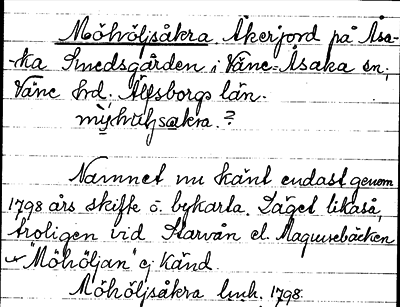 Möhöljsåkra. Åkerjord på Åsa-
ka Smedsgården i Väne-Åsaka sn,
Väne hrd. Älfsborgs län.
Namnet nu känt endast genom
1798 års skifte o. bykarta. Läget likaså,
troligen vid Starvån el. Maquusebäcken
"Möhöljan" ej känd.
Möhöljsåkra lmh. 1798.